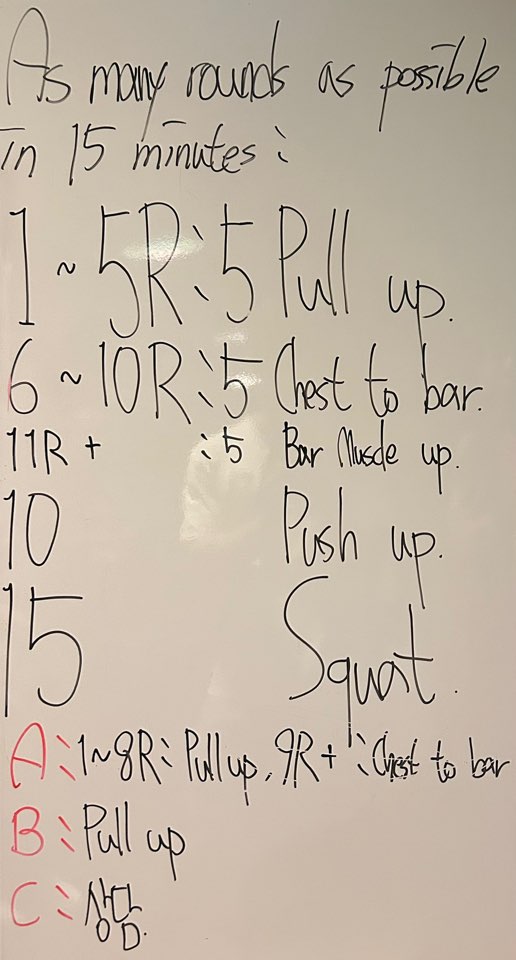 As many rounds as possible
in 15 minutes :
1 ~ 5R : 5 Pull up.
6 ~ 10R : 5 Chest to bar.
11R + : 5 Bar Muscle up.
10 Push up.
15 Squat.
A : 1~8R : Pull up, 9R + : Chest to bar
B : Pull up
C : 상담.